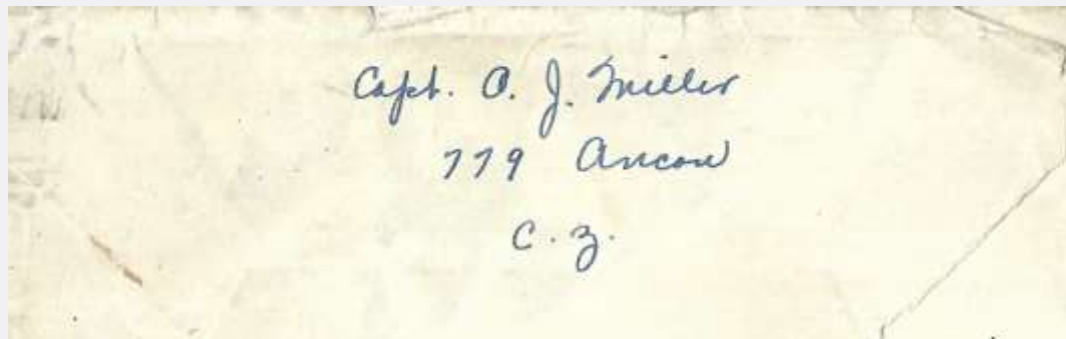 Capt. O. J. Miller
779 Ancon
C. Z.